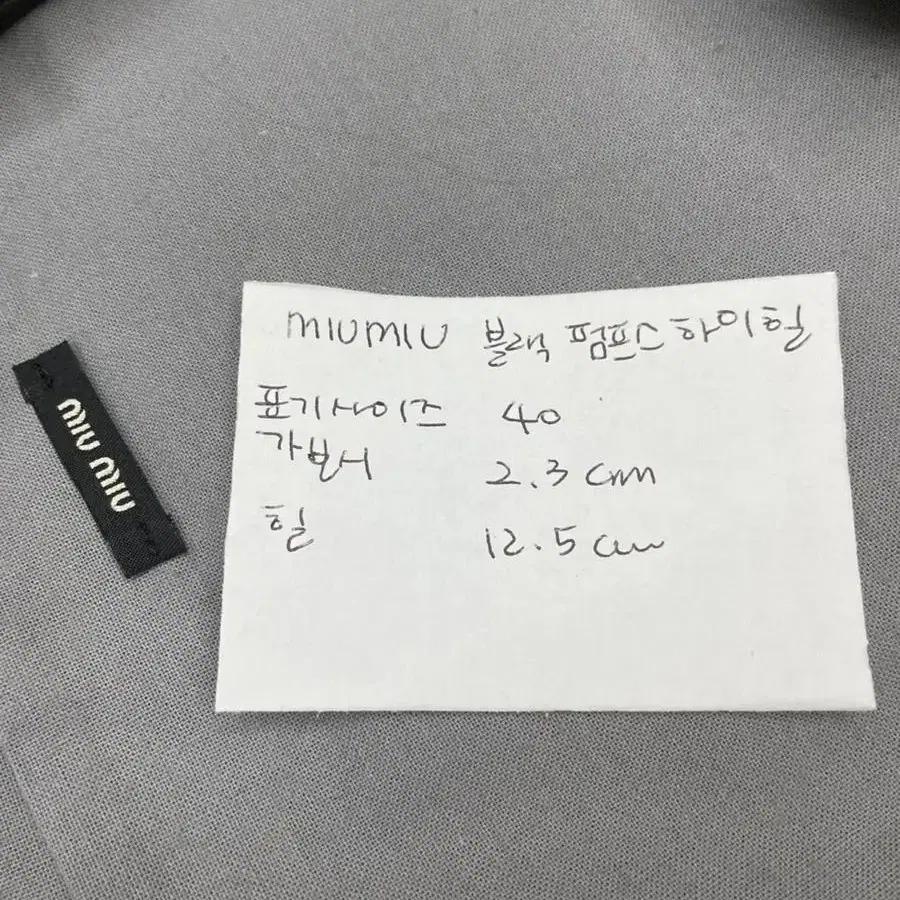 miu miu
MIUMIU 블랙 펌프스 하이힐
표기사이즈 40
가보시 2.3 cm
힐 12.5 cm